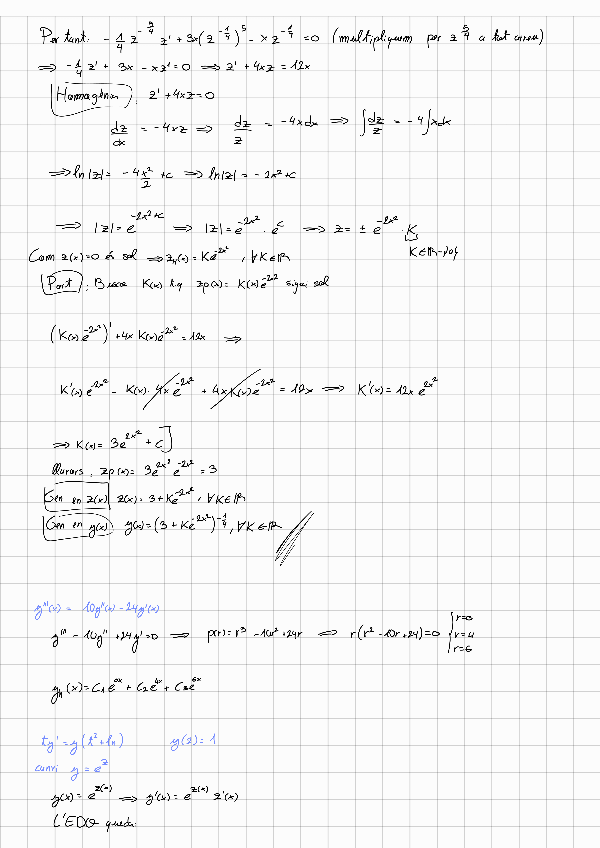 Per tant: -1/4 z^{-5/4} z' + 3x(z^{-1/4})^5 - x z^{-1/4} = 0 (multipliquem per z^{5/4} a tot arreu)
⇒ -1/4 z' + 3x - xz = 0 ⇒ z' + 4xz = 12x
Homogènia: z' + 4xz = 0
dz/dx = -4xz ⇒ dz/z = -4xdx ⇒ ∫dz/z = -4∫xdx
⇒ ln|z| = -4x²/2 + c ⇒ ln|z| = -2x² + c
⇒ |z| = e^{-2x²+c} ⇒ |z| = e^{-2x²} · e^c ⇒ z = ± e^{-2x²} · K
K∈ℝ-{0}
Com z(x)=0 és sol ⇒ z_h(x) = Ke^{-2x²}, ∀K∈ℝ
Part: Busca K(x) t.q. zp(x) = K(x)e^{-2x²} sigui sol
(K(x)e^{-2x²})' + 4x K(x)e^{-2x²} = 12x ⇒
K'(x)e^{-2x²} - K(x)·4xe^{-2x²} + 4xK(x)e^{-2x²} = 12x ⇒ K'(x) = 12x e^{2x²}
⇒ K(x) = 3e^{2x²} + C]
Llavors, zp(x) = 3e^{2x²} e^{-2x²} = 3
Gen en z(x) z(x) = 3 + Ke^{-2x²}, ∀K∈ℝ
Gen en y(x) y(x) = (3 + Ke^{-2x²})^{-1/4}, ∀K∈ℝ
y'''(x) = 10y''(x) - 24y'(x)
y''' - 10y'' + 24y' = 0 ⇒ p(r) = r³ - 10r² + 24r ⇒ r(r² - 10r + 24) = 0 { r=0
r=4
r=6
y_h(x) = C₁e^{0x} + C₂e^{4x} + C₃e^{6x}
ty' = y(t² + ln) y(2) = 1
canvi y = e^z
y(x) = e^{z(x)} ⇒ y'(x) = e^{z(x)} z'(x)
L'EDO queda: